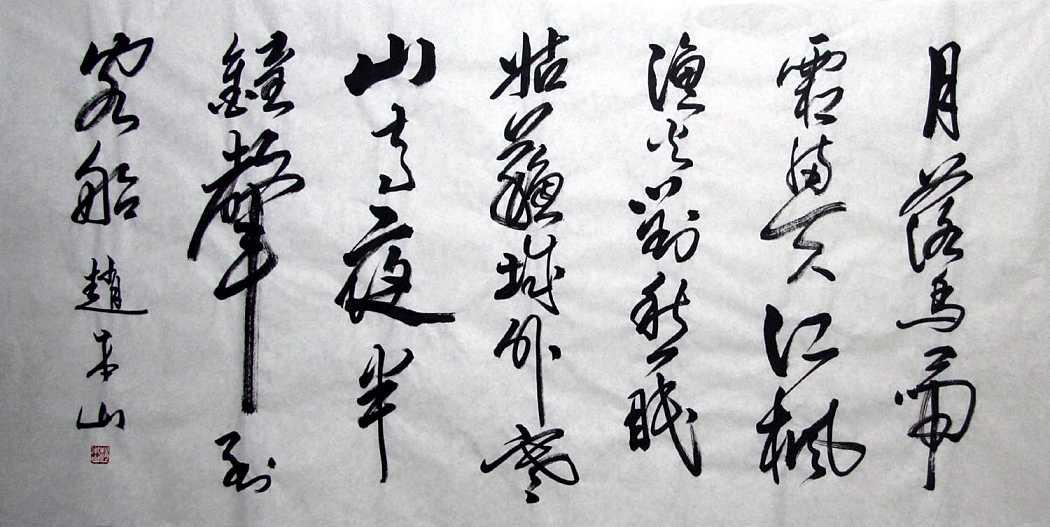 月落烏啼
霜滿天江楓
漁火對愁眠
姑蘇城外寒
山寺夜半
鐘聲到
客船 趙本山